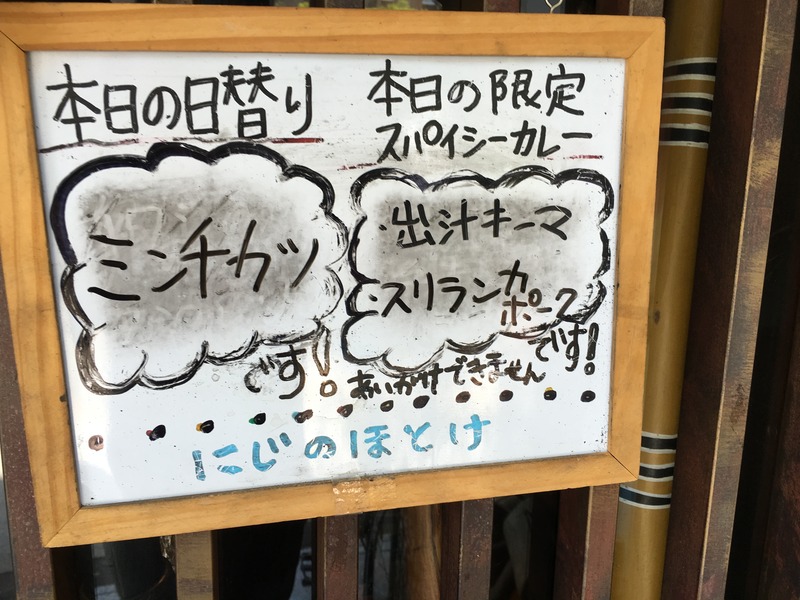 本日の日替り
ミンチカツ
です!
本日の限定
スパイシーカレー
・出汁キーマ
・スリランカ
ポーク
です!
あいがけできません
にじのほとけ